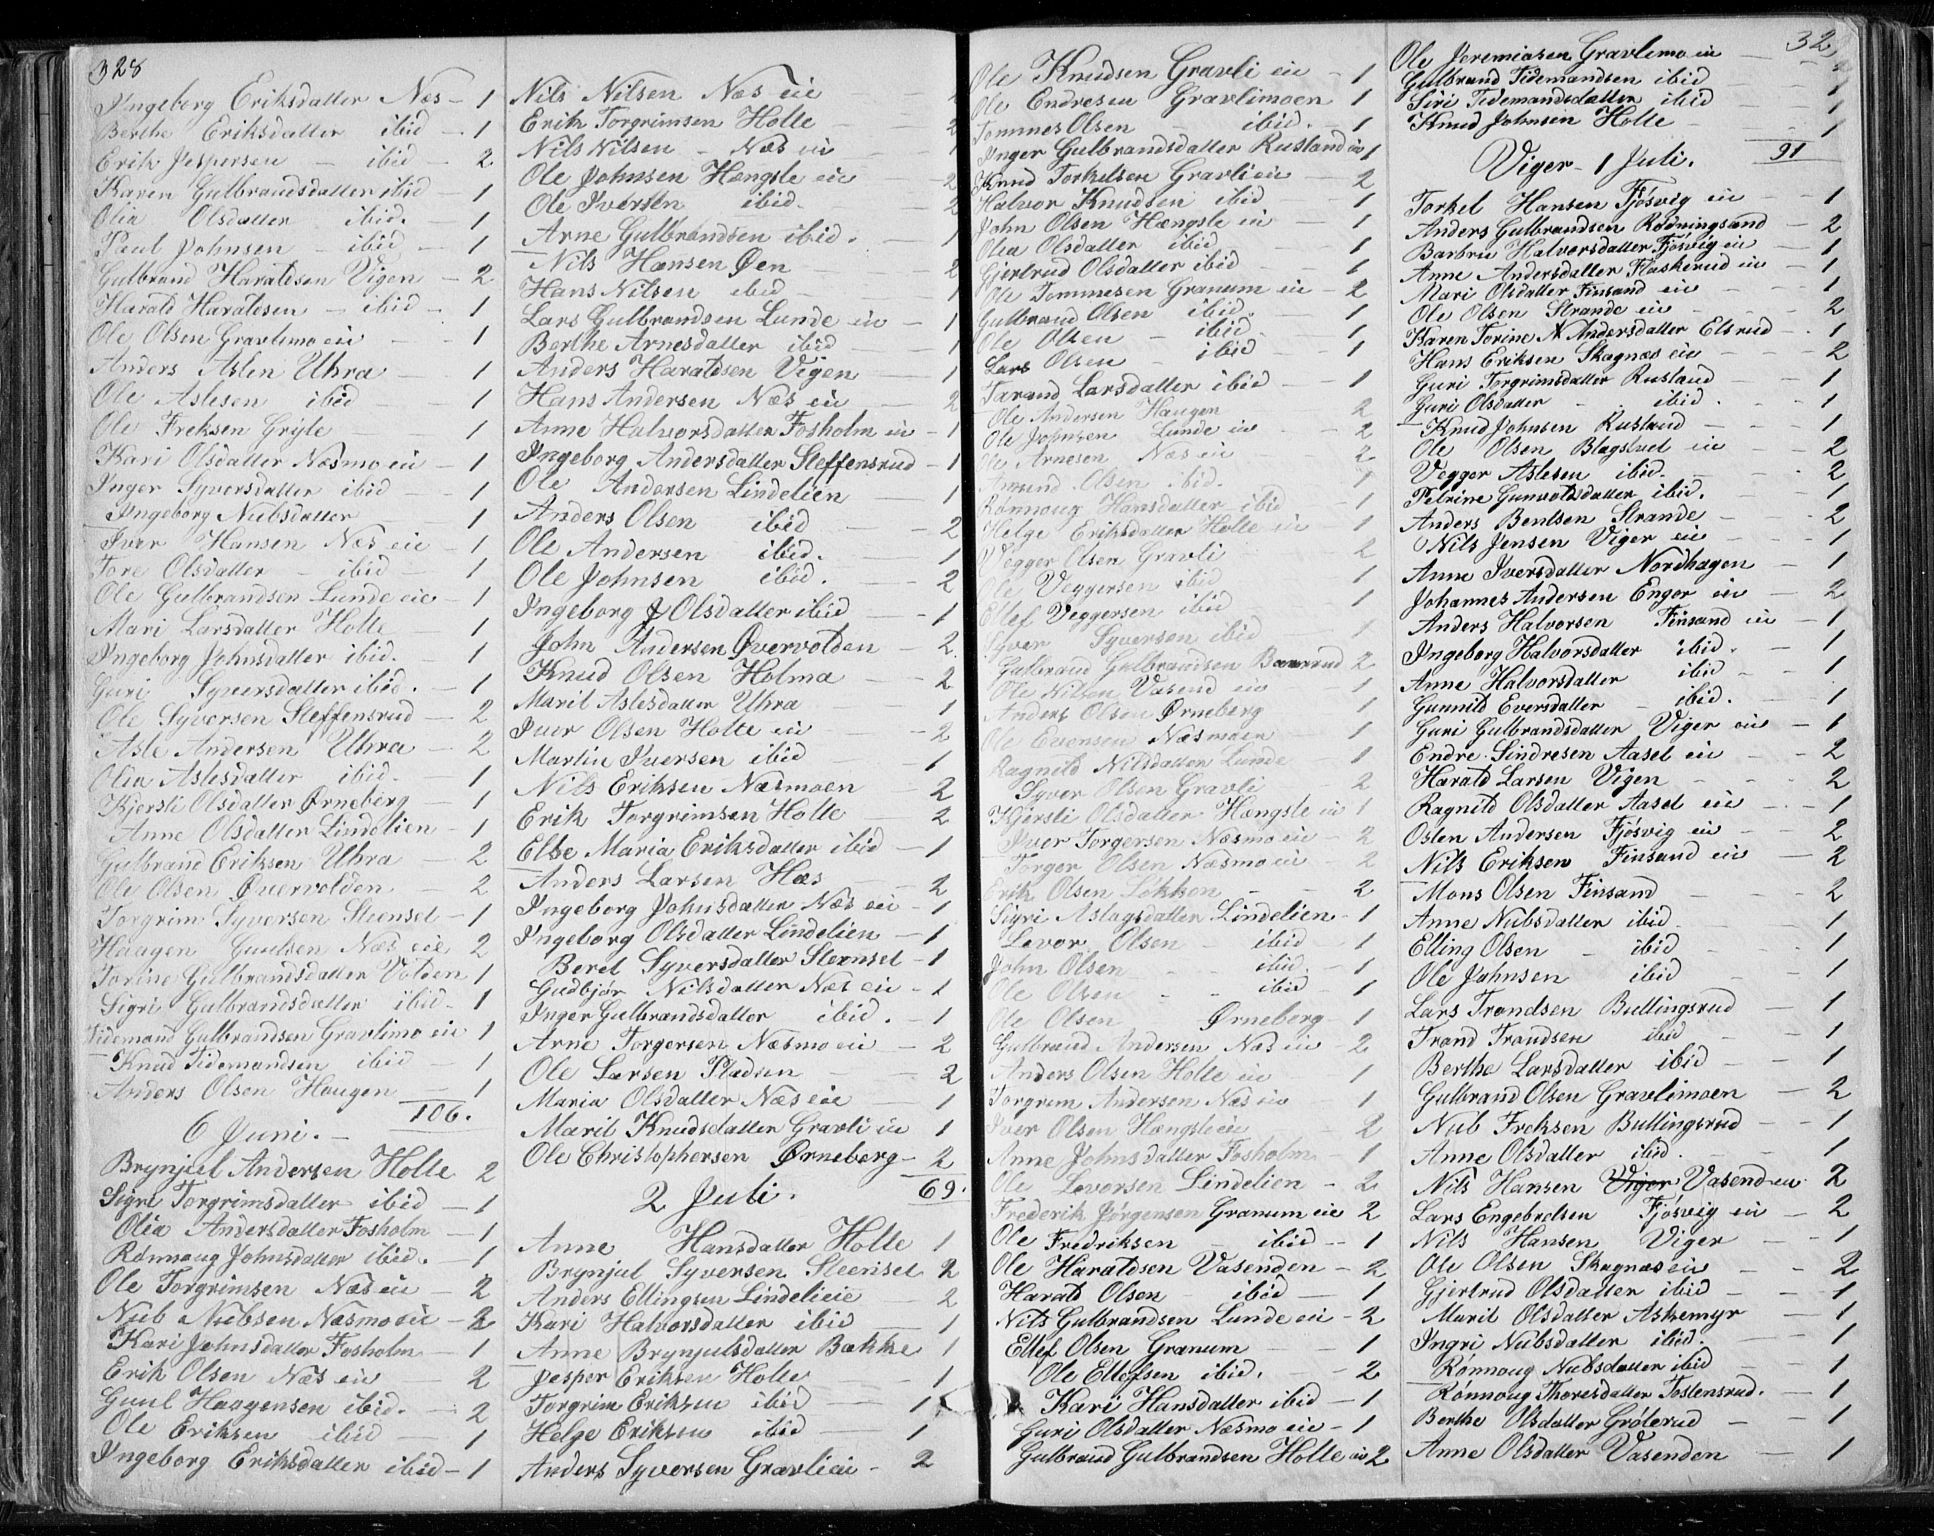 328
Ingeborg Eriksdatter Næs - 1
Berthe Eriksdatter ibid - 1
Erik Jespersen - ibid - 2
Karen Gulbrandsdatter ibid - 1
Olia Olsdatter ibid. 1
Paul Johnsen - ibid - 1
Gulbrand Haraldsen Vigen - 2
Harald Haraldsen - ibid - 1
Ole Olsen Gravlimo eie - 1
Anders Aslen Uhra - 1
Ole Aslesen ibid - 1
Ole Freksen Gryte - 1
Kari Olsdatter Næsmo eie - 1
Inger Syversdatter ibid - 1
Ingeborg Nubsdatter 1
Iver Hansen Næs eie - 1
Tore Olsdatter - ibid - 1
Ole Gulbrandsen Lunde eie - 1
Mari Larsdatter Holte - 1
Ingeborg Johnsdatter ibid. - 1
Guri Syversdatter ibid. - 1
Ole Syversen Steffensrud - 2
Asle Andersen Uhra - 2
Olia Aslesdatter ibid. 1
Kjersti Olsdatter Ørneberg - 1
Anne Olsdatter Lindelien - 1
Gulbrand Eriksen Uhra - 2
Ole Olsen Øvervolden - 2
Torgrim Syversen Steenset - 1
Haagen Guulsen Næs eie 2
Torine Gulbrandsdatter Volden 1
Sigri Gulbrandsdatter ibid - 1
Tidemand Gulbrandsen Gravlimo eie 1
Knud Tidemandsen ibid 1
Anders Olsen Haugen - 1
106.
6 Juni. -
Brynjul Andersen Holte 2
Sigri Torgrimsdatter ibid - 1
Olia Andersdatter Fosholm - 1
Rønnoug Johnsdatter ibid. - 1
Ole Torgrimsen Næs eie - 2
Nub Nubsen Næsmo eie - 2
Kari Johnsdatter Fosholm - 1
Erik Olsen Næs eie 2
Guul Haagensen ibid. - 2
Ole Eriksen ibid - 1
Ingeborg Eriksdatter ibid - 1
Nils Nilsen Næs eie 2
Erik Torgrimsen Holte - 2
Nils Nilsen - Næs eie - 1
Ole Johnsen Hængsle eie - 2
Ole Iversen ibid. - 2
Arne Gulbrandsen ibid. - 1
Nils Hansen Øen - 2
Hans Nilsen ibid - 1
Lars Gulbrandsen Lunde eie - 1
Berthe Arnesdatter ibid - 1
Anders Haraldsen Vigen - 1
Hans Andersen Næs eie - 2
Anne Halvorsdatter Fosholm eie - 1
Ingeborg Andersdatter Steffensrud - 1
Ole Andersen Lindelien 1
Anders Olsen ibid - 2
Ole Andersen ibid. - 1
Ole Johnsen ibid. - 2
Ingeborg Olsdatter ibid - 1
John Andersen Øvervolden - 2
Knud Olsen Holma - 2
Marit Aslesdatter Uhra 1
Iver Olsen Holte eie - 2
Martin Iversen ibid - 1
Nils Eriksen Næsmoen - 2
Erik Torgrimsen Holte - 2
Else Maria Eriksdatter ibid - 1
Anders Larsen Næs - 2
Ingeborg Johnsdatter Næs eie - 1
Ingeborg Olsdatter Lindelien - 1
Beret Syversdatter Steenset - 1
Gudbjør Nilsdatter Næs eie - 1
Inger Gulbrandsdatter ibid. - 1
Arne Torgersen Næsmo eie - 2
Ole Larsen Pladsen - 2
Maria Olsdatter Næs eie - 1
Marit Knudsdatter Gravli eie 1
Ole Christophersen Ørneberg - 2
2 Juli. 69.
Anne Hansdatter Holte 1
Brynjul Syversen Steenset 2
Anders Ellingsen Lindelieie 2
Kari Halvorsdatter ibid - 1
Anne Brynjulsdatter Bakke 1
Jesper Eriksen Holte - 1
Torgrim Eriksen ibid 1
Helge Eriksen ibid - 1
Anders Syversen Gravli eie - 2
Ole Knudsen Gravli eie - 1
Ole Endresen Gravlimoen 1
Tommes Olsen ibid. - 1
Inger Gulbrandsdatter Rusland eie 1
Knud Torkelsen Gravli eie - 2
Halvor Knudsen ibid - 1
John Olsen Hængsle eie - 1
Olia Olsdatter ibid 1
Gjertrud Olsdatter ibid - 1
Ole Tommesen Granum eie - 2
Gulbrand Olsen ibid. - 1
Ole Olsen - ibid. 1
Lars Olsen - ibid - 1
Tarand Larsdatter ibid - 1
Ole Andersen Haugen 2
Ole Johnsen Lunde eie - 2
Ole Arnesen Næs eie 2
Amund Olsen ibid. 1
Rønnoug Hansdatter ibid 1
Helge Eriksdatter Holte eie - 1
Vegger Olsen Gravli 2
Ole Veggersen ibid 1
Ellef Veggersen ibid 1
Syver Syversen ibid 1
Gulbrand Gulbrandsen 2
Ole Nilsen Vasend eie 1
Anders Olsen Ørneberg 1
Ole Evensen Næsmoen - 1
Ragnild Nilsdatter Lunde 1
Syver Olsen Gravli - 2
Kjersti Olsdatter Hængsle eie 1
Iver Torgersen Næsmo eie - 2
Torger Olsen Næsmo eie - 2
Erik Olsen Løkken - - 2
Sigri Aslagsdatter Lindelien - 1
Levor Olsen - ibid - 1
John Olsen - - ibid. - 1
Ole Olsen - - ibid - 1
Ole Olsen Ørneberg - 1
Gulbrand Andersen Næs eie - 2
Anders Olsen Holte eie 1
Torgrim Andersen Næs eie - 1
Iver Olsen Hængsle eie 2
Anne Johnsdatter Fosholm - 1
Ole Levorsen Lindelien - 2
Frederik Jørgensen Granum eie 2
Ole Fredriksen - ibid - 1
Ole Haraldsen Vasenden - 2
Harald Olsen - ibid - 1
Nils Gulbrandsen Lunde eie - 2
Ellef Olsen Granum - - 1
Ole Ellefsen ibid. - 2
Kari Hansdatter ibid - 1
Guri Olsdatter Næsmo eie - 1
Gulbrand Gulbrandsen Holte eie 2
32
Ole Jeremiasen Gravlimo eie - -
Gulbrand Tidemandsen ibid - 1
Siri Tidemandsdatter ibid - 1
Knud Johnsen Holte - - 1
Viger - 1 Juli. 91
Torkel Hansen Fjøsvig eie - 1
Anders Gulbrandsen Rødningsand - 2
Barbru Halvorsdatter Fjøsvig eie - 1
Anne Andersdatter Flaskerud eie - 1
Mari Olsdatter Finsand eie - - 1
Ole Olsen Strande eie - - 2
Karen Torine N Andersdatter Elsrud - 1
Hans Eriksen Skagnæs eie - - 2
Guri Torgrimsdatter Rusland - - 1
Guri Olsdatter - ibid. - 1
Knud Johnsen Rusland - - 1
Ole Olsen Blagstvet eie - 2
Vegger Aslesen ibid. - - 2
Petrine Gunvoldsdatter ibid. - 1
Anders Bentsen Strande - - 2
Nils Jensen Viger eie - - 1
Anne Iversdatter Nordhagen - 1
Johannes Andersen Enger eie - 2
Anders Halvorsen Finsand eie - 1
Ingeborg Halvorsdatter ibid. - 1
Anne Halvorsdatter ibid - 1
Gunnild Eversdatter - ibid. - 1
Guri Gulbrandsdatter Viger eie - 1
Endre Sindresen Aaset eie - 2
Harald Larsen Vigen - - 2
Ragnild Olsdatter Aaset eie - - 1
Osten Andersen Fjøsvig eie - 2
Nils Eriksen Finsand eie - 2
Mons Olsen Finsand - - 2
Anne Nubsdatter ibid. - 1
Elling Olsen - ibid - - 1
Ole Johnsen ibid - 1
Lars Trondsen Bullingsrud - 1
Trond Trondsen ibid - - 1
Berthe Larsdatter ibid - - 1
Gulbrand Olsen Gravlimoen - 2
Nub Freksen Bullingsrud - 1
Anne Olsdatter ibid. - - 1
Nils Hansen Viger Vasend eie 2
Lars Engebretsen Fjøsvig eie - 2
Nils Hansen Viger - 1
Ole Olsen Skagnæs eie - 2
Gjertrud Olsdatter ibid - - 1
Marit Olsdatter Askemyr - 1
Ingri Nubsdatter ibid. - - 1
Rønnoug Nubsdatter ibid - 1
Rønnoug Thoresdatter Tostensrud. - 1
Berthe Olsdatter Grøterud - - 1
Anne Olsdatter Vasenden - 1